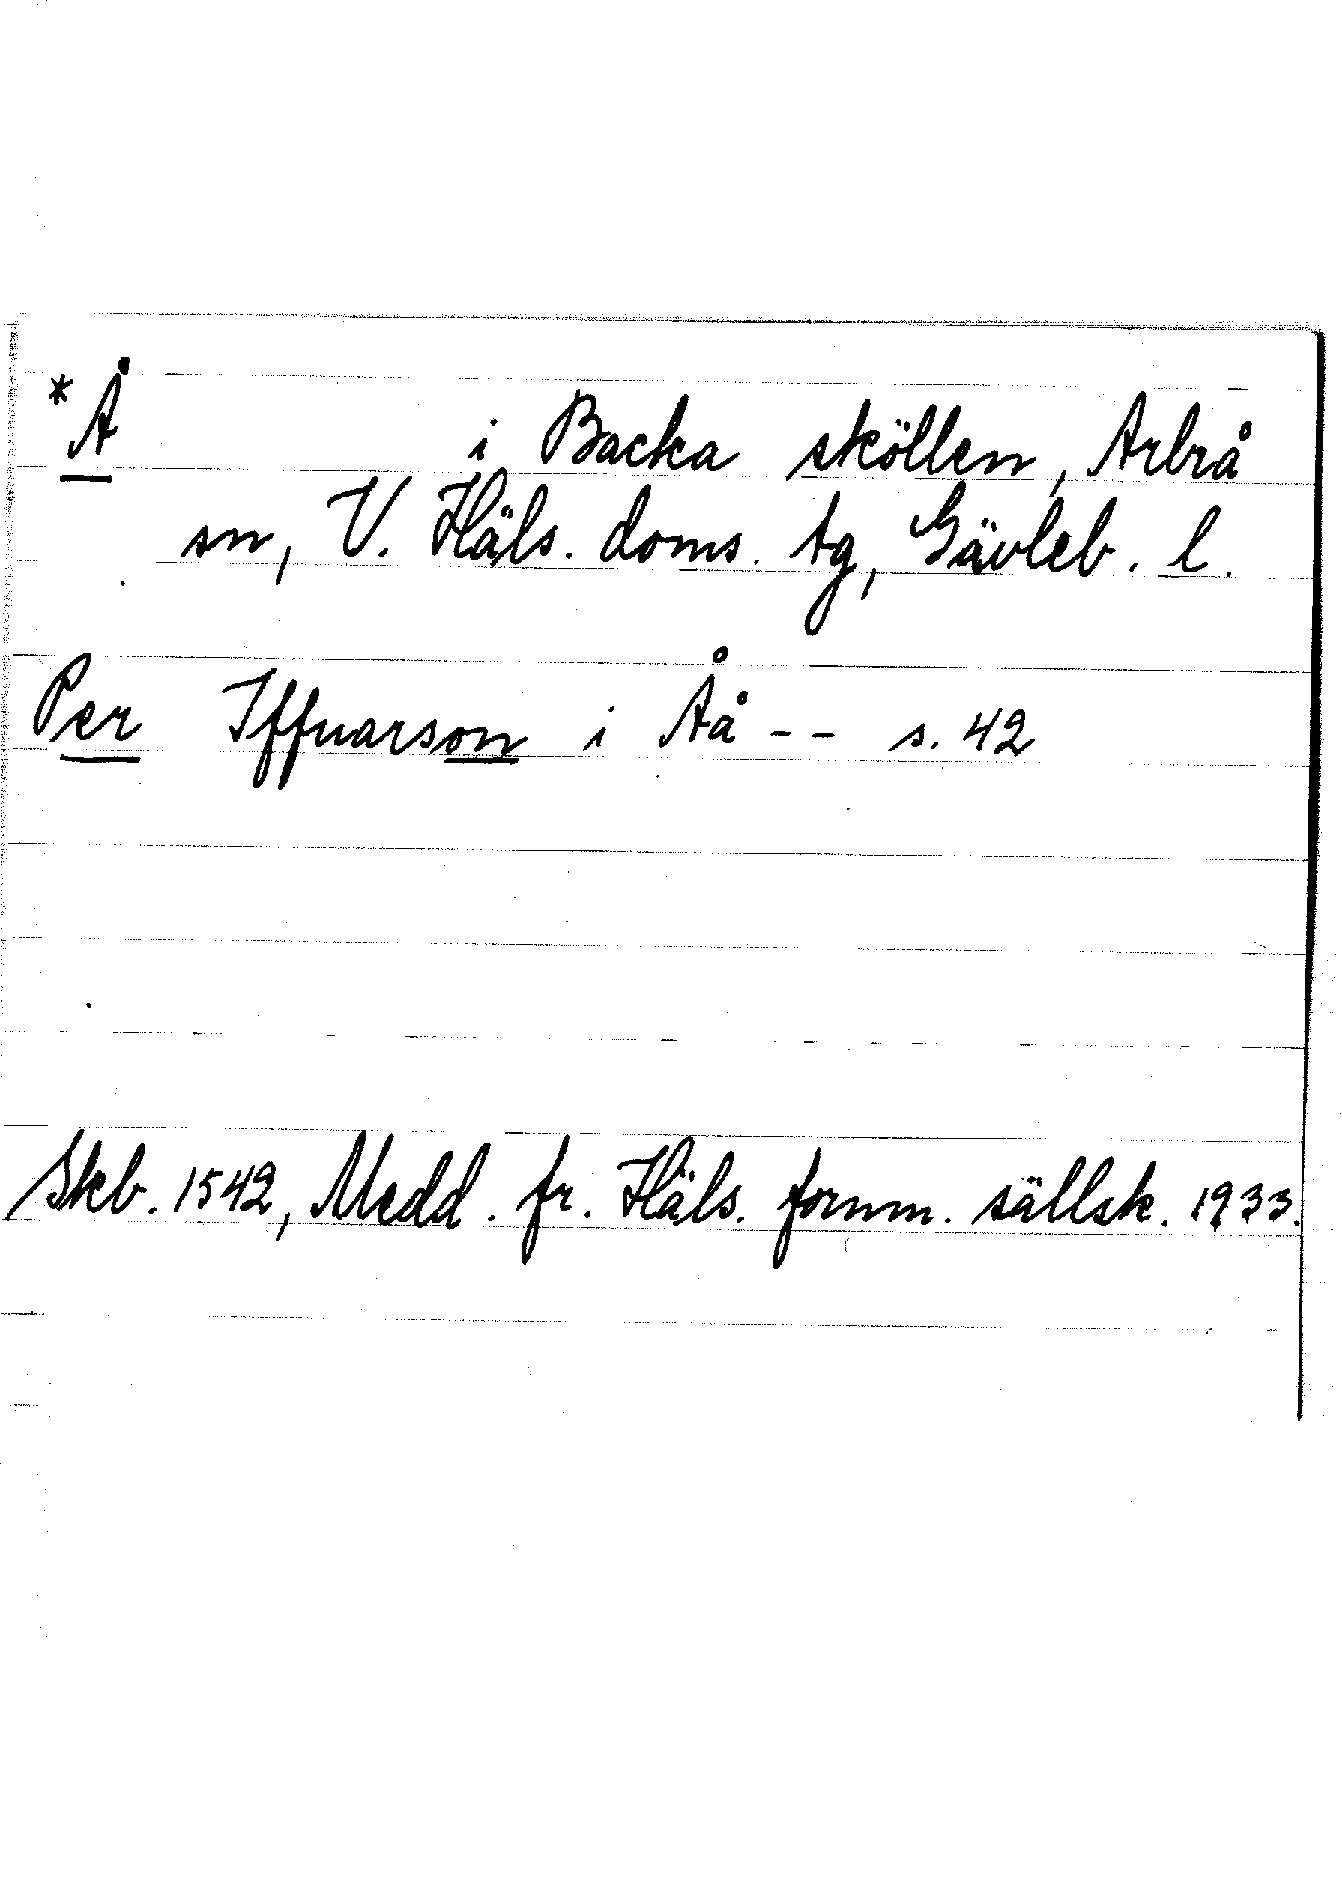 *Å i Backa sköllen, Arbrå
sn, V. Häls. doms. tg, Gävleb. l.
Per Iffuarson i Åå -- s. 42
Skb. 1542, Medd. fr. Häls. fornm. sällsk. 1933.